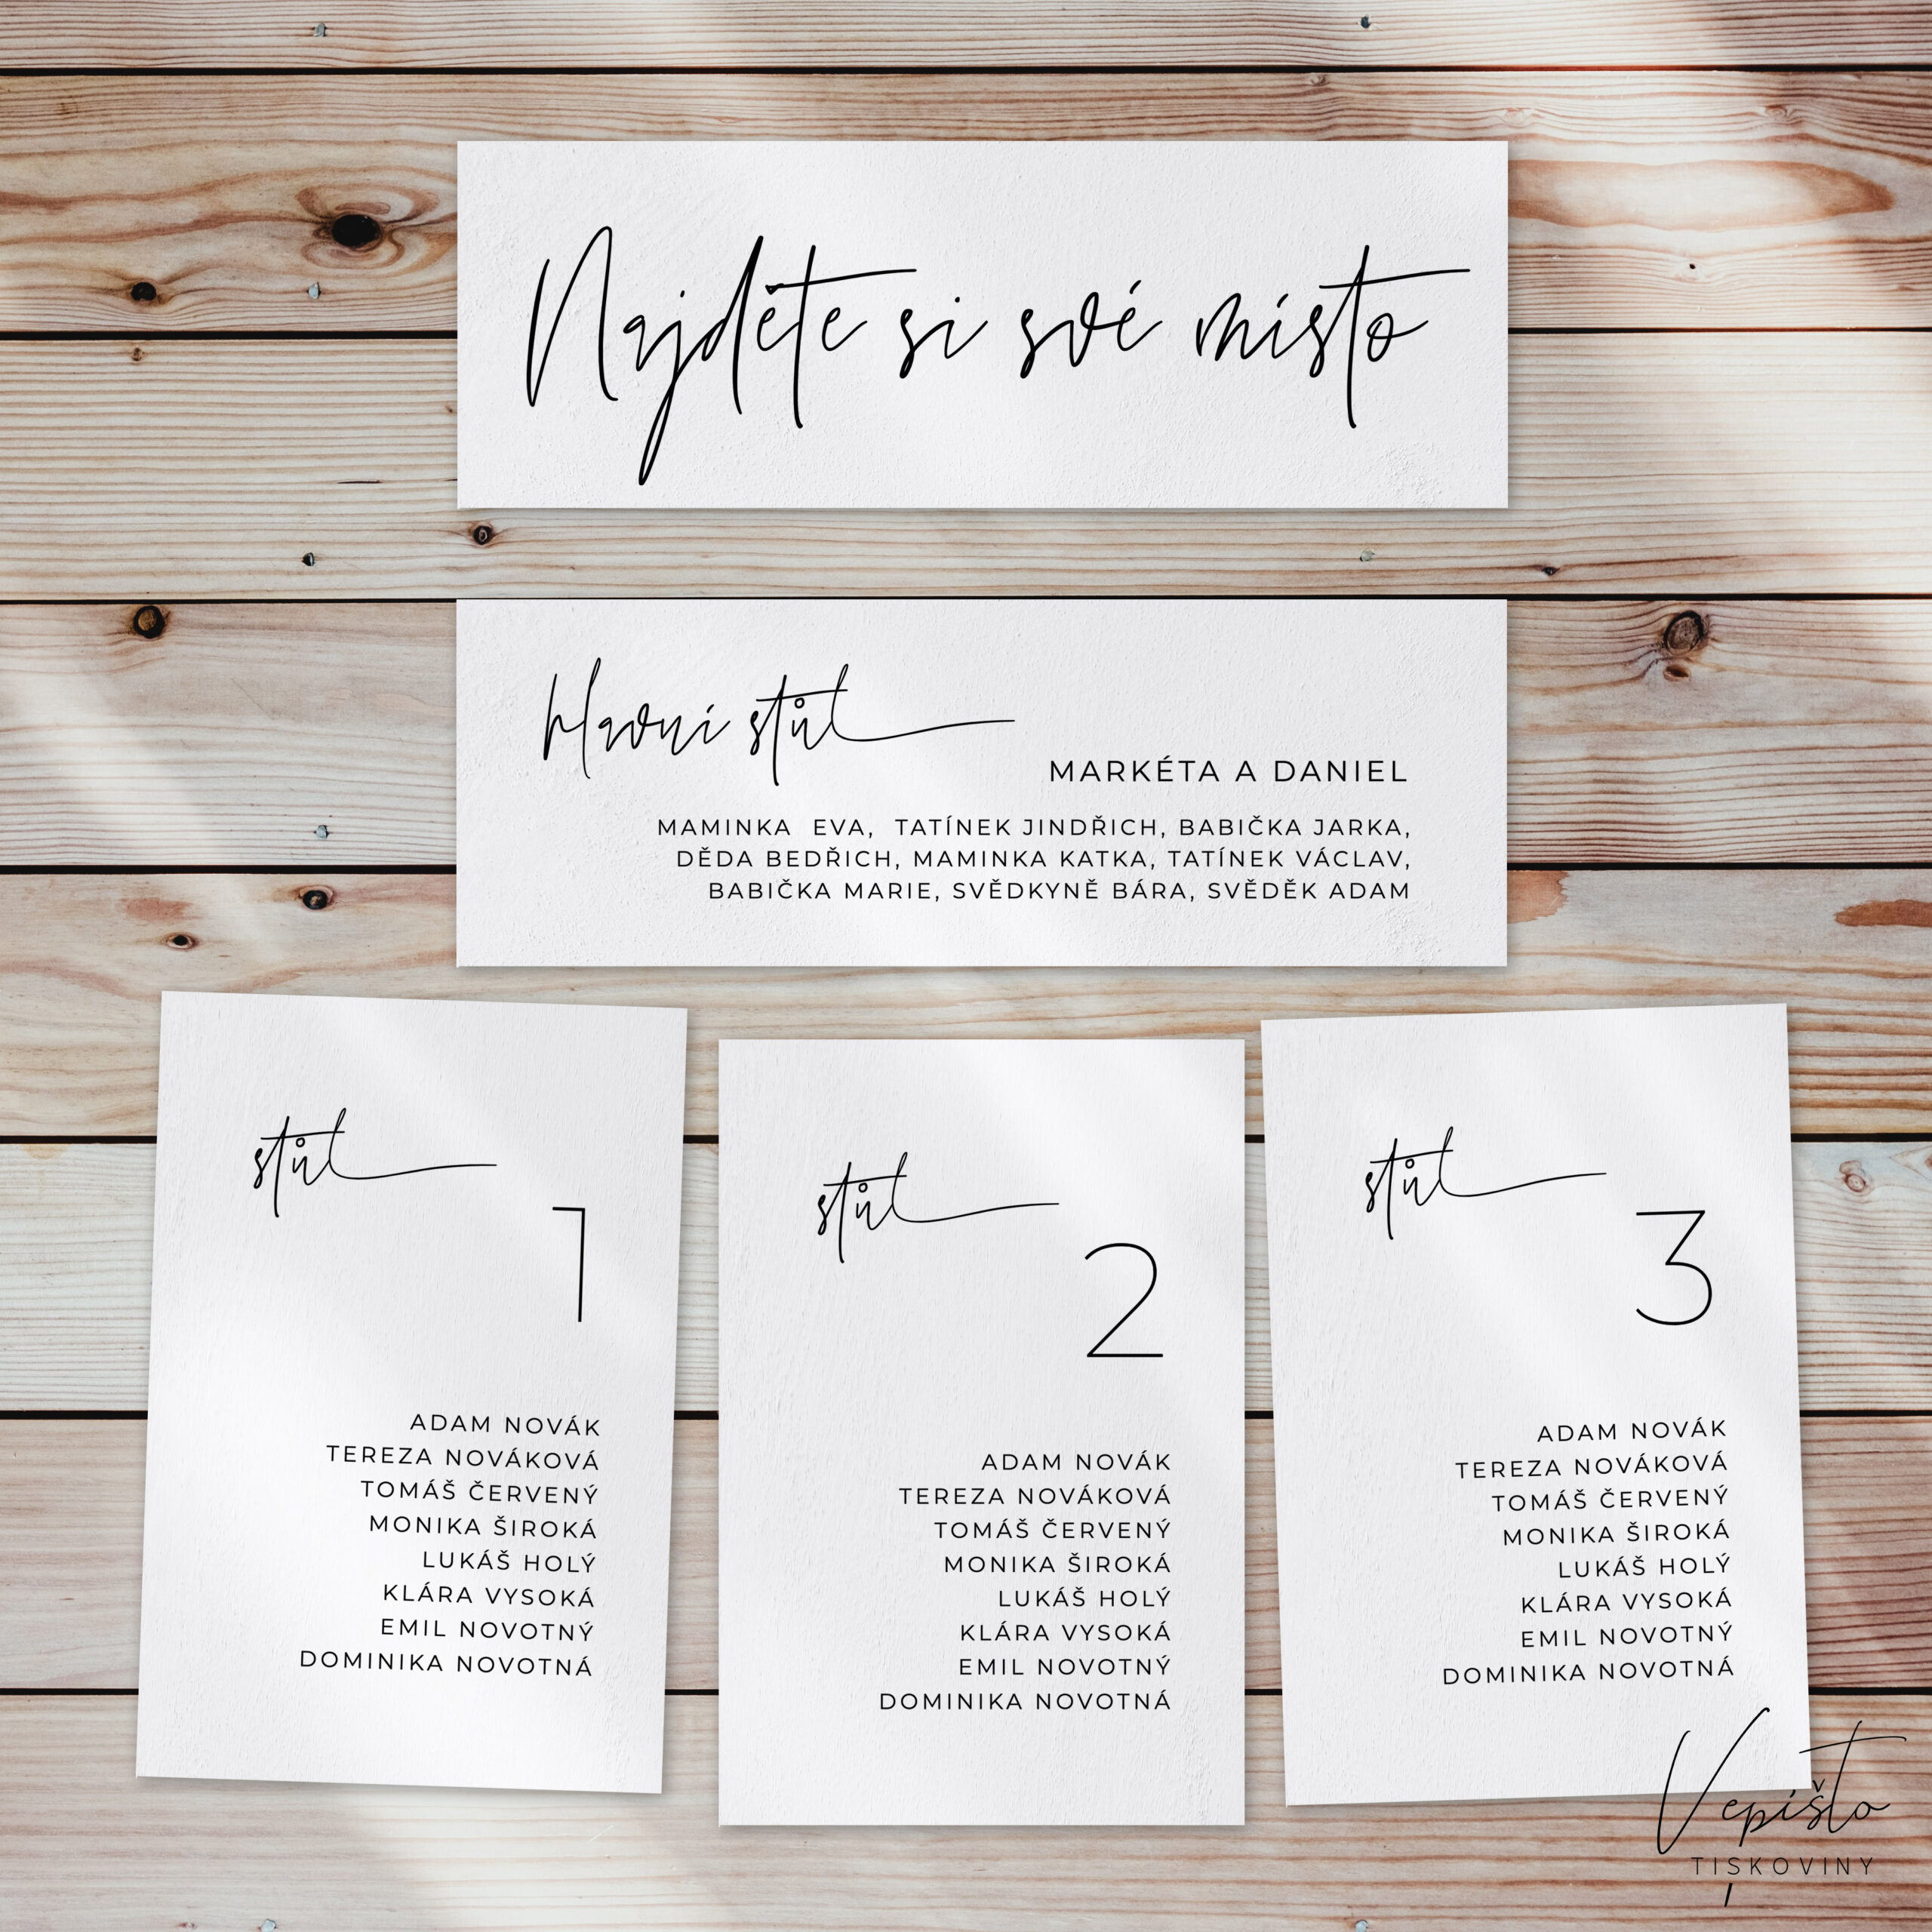 Najděte si své místo
hlavní stůl
MARKÉTA A DANIEL
MAMINKA EVA, TATÍNEK JINDŘICH, BABIČKA JARKA,
DĚDA BEDŘICH, MAMINKA KATKA, TATÍNEK VÁCLAV,
BABIČKA MARIE, SVĚDKYNĚ BÁRA, SVĚDĚK ADAM
stůl
1
ADAM NOVÁK
TEREZA NOVÁKOVÁ
TOMÁŠ ČERVENÝ
MONIKA ŠIROKÁ
LUKÁŠ HOLÝ
KLÁRA VYSOKÁ
EMIL NOVOTNÝ
DOMINIKA NOVOTNÁ
stůl
2
ADAM NOVÁK
TEREZA NOVÁKOVÁ
TOMÁŠ ČERVENÝ
MONIKA ŠIROKÁ
LUKÁŠ HOLÝ
KLÁRA VYSOKÁ
EMIL NOVOTNÝ
DOMINIKA NOVOTNÁ
stůl
3
ADAM NOVÁK
TEREZA NOVÁKOVÁ
TOMÁŠ ČERVENÝ
MONIKA ŠIROKÁ
LUKÁŠ HOLÝ
KLÁRA VYSOKÁ
EMIL NOVOTNÝ
DOMINIKA NOVOTNÁ
Vepíšto
TISKOVINY